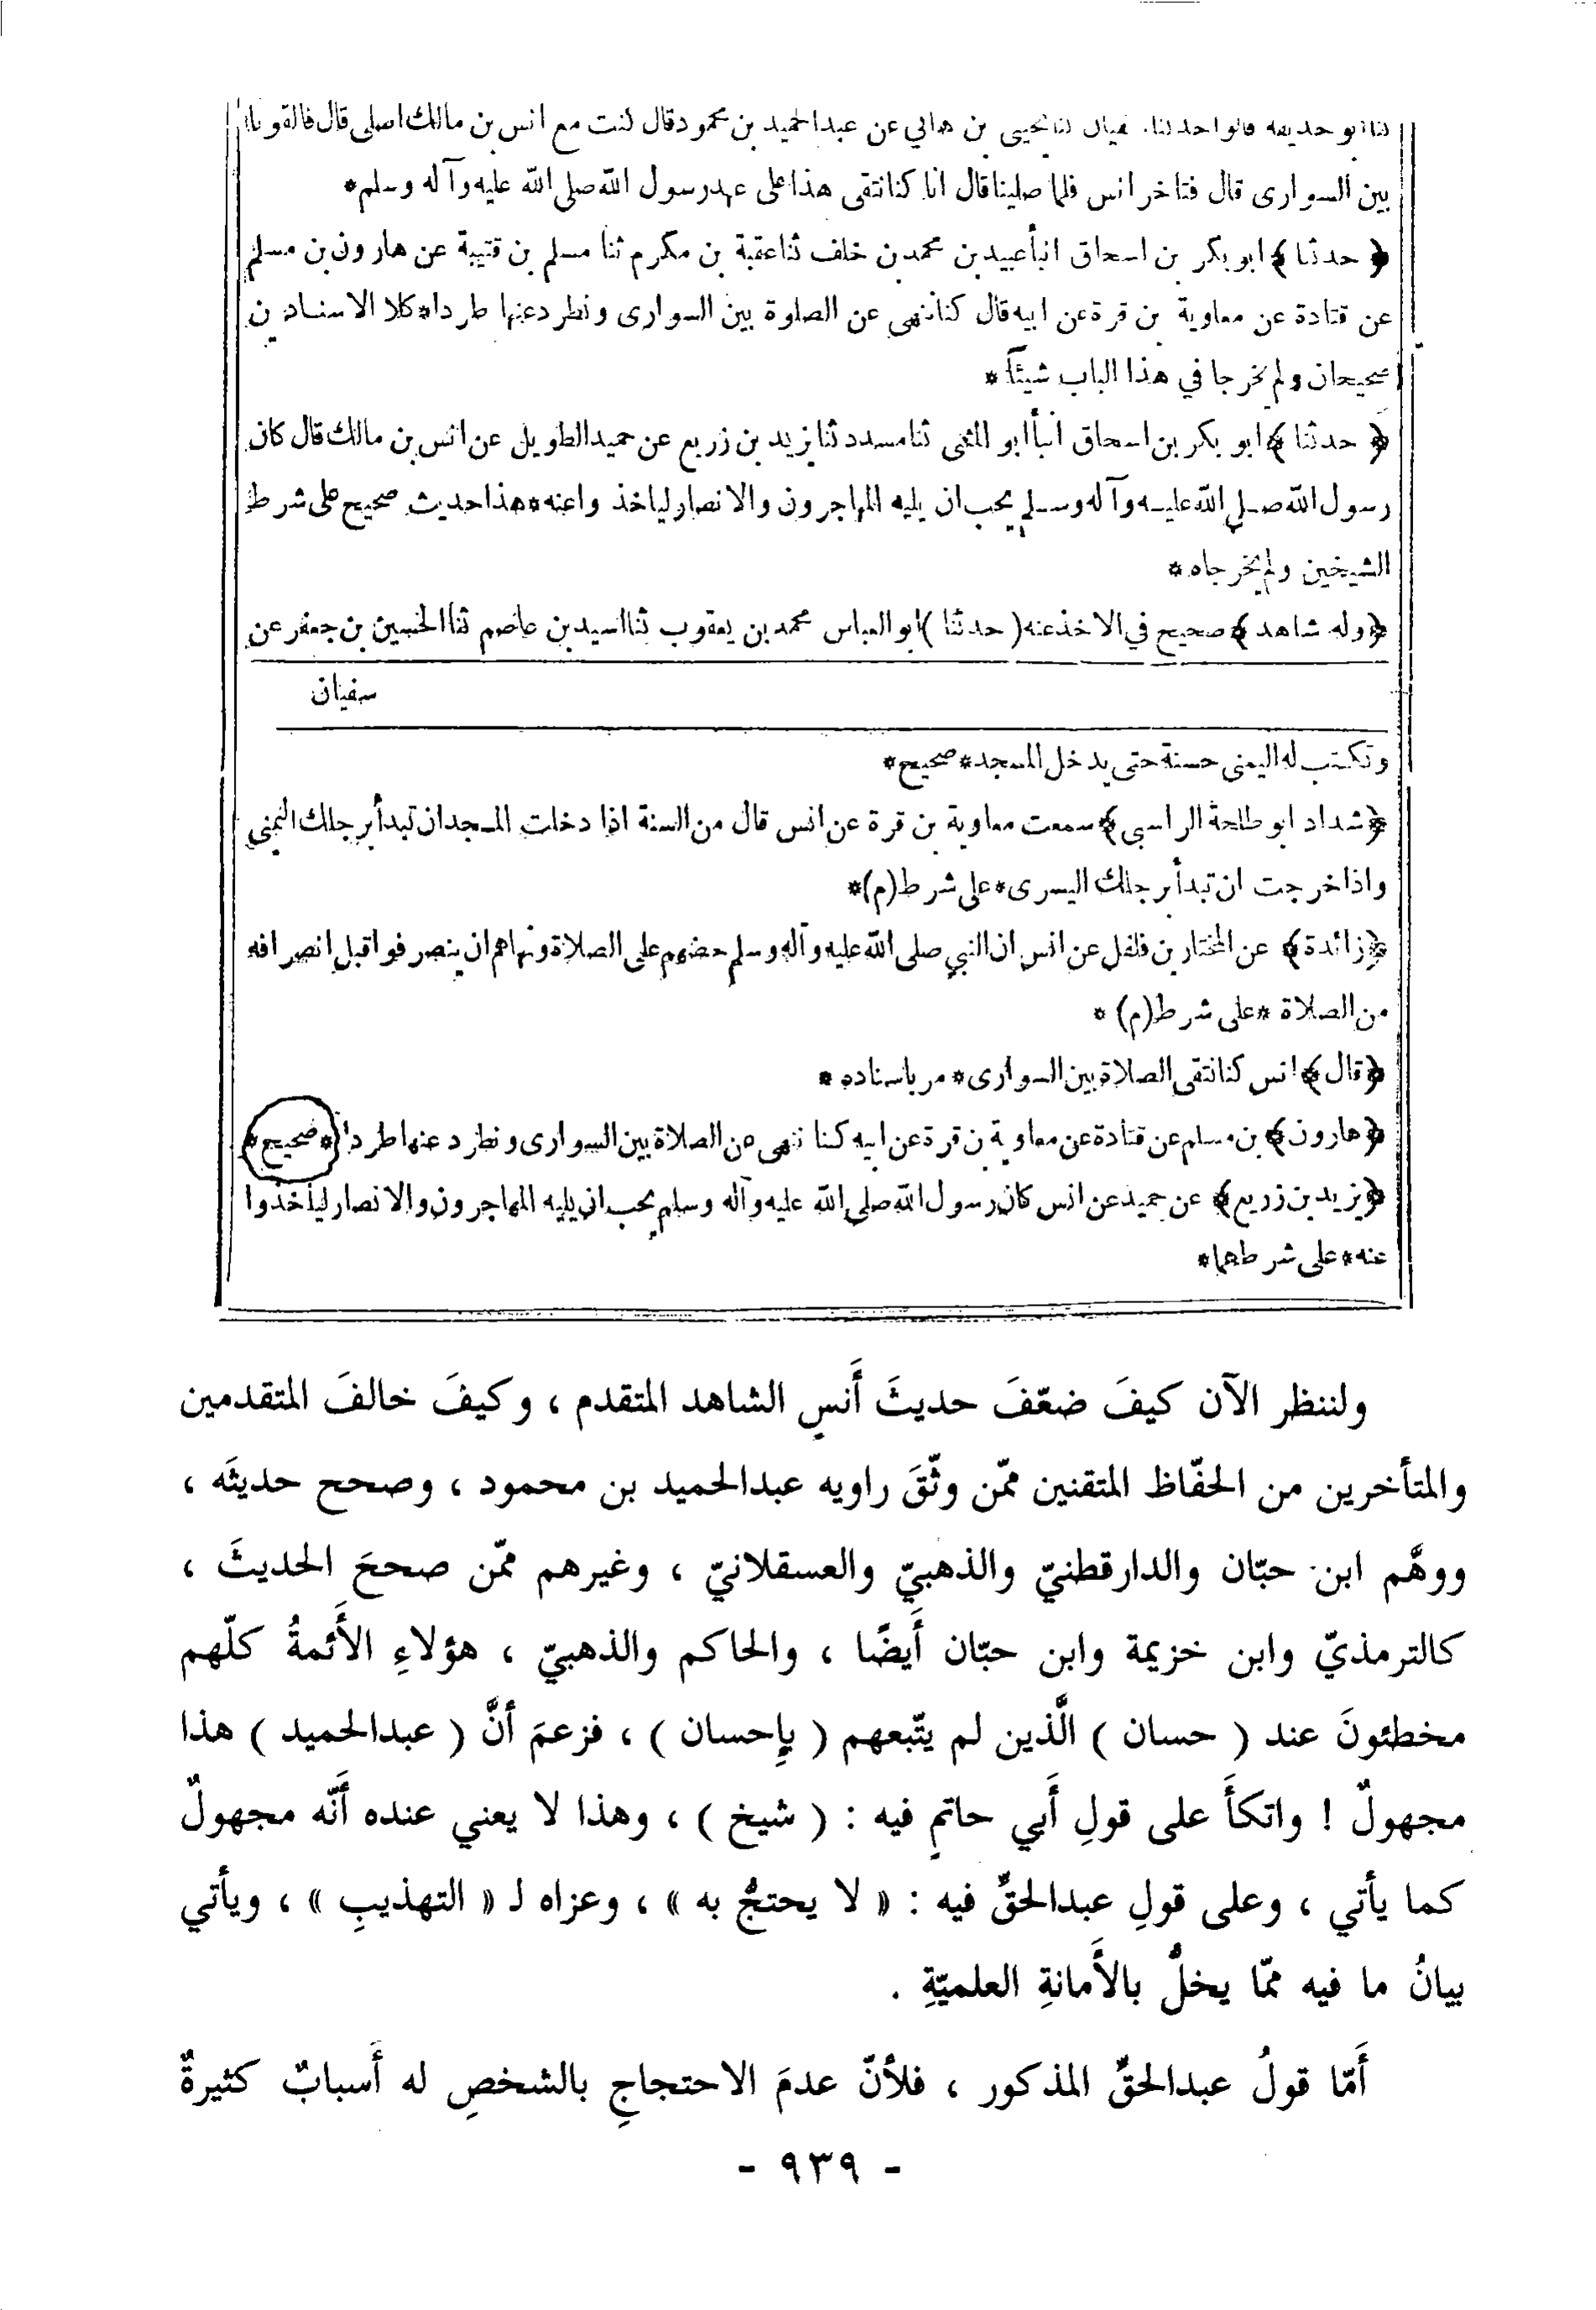 ثنا ابو حذيفة قالوا حدثنا سفيان ثنا يحيى بن هاني عن عبدالحميد بن محمود قال كنت مع انس بن مالك اصلى قال فالقونا
بين السوارى قال فتاخر انس فلما صلينا قال انا كنا نتقى هذا على عهد رسول الله صلى الله عليه وآله وسلم*
﴿حدثنا﴾ ابو بكر بن اسحاق انبأ عبيد بن محمد بن خلف ثنا عقبة بن مكرم ثنا مسلم بن قتيبة عن هارون بن مسلم
عن قتادة عن معاوية بن قرة عن ابيه قال كنا ننهى عن الصلوة بين السوارى ونطرد عنها طردا* كلا الاسنادين
صحيحان ولم يخرجا في هذا الباب شيئاً*
﴿حدثنا﴾ ابو بكر بن اسحاق انبأ ابو المثنى ثنا مسدد ثنا يزيد بن زريع عن حميد الطويل عن انس بن مالك قال كان
رسول الله صلى الله عليه وآله وسلم يحب ان يليه المهاجرون والانصار لياخذ واعنه* هذا حديث صحيح على شرط
الشيخين ولم يخرجاه*
﴿وله شاهد﴾ صحيح في الاخذ عنه (حدثنا) ابو العباس محمد بن يعقوب ثنا اسيد بن عاصم ثنا الحسين بن جعفر عن
سفيان
وتكتب له اليمنى حسنة حتى يدخل المسجد* صحيح*
﴿شداد ابو طلحة الراسبى﴾ سمعت معاوية بن قرة عن انس قال من السنة اذا دخلت المسجد ان تبدأ برجلك اليمنى
واذا خرجت ان تبدأ برجلك اليسرى* على شرط (م)*
﴿زائدة﴾ عن المختار بن فلفل عن انس ان النبي صلى الله عليه وآله وسلم حضهم على الصلاة ونهاهم ان ينصرفوا قبل انصرافه
من الصلاة* على شرط (م)*
﴿قال﴾ انس كنا نتقى الصلاة بين السوارى* مر باسناده*
﴿هارون﴾ بن مسلم عن قتادة عن معاوية بن قرة عن ابيه كنا ننهى عن الصلاة بين السوارى ونطرد عنها طردا *صحيح*
﴿يزيد بن زريع﴾ عن حميد عن انس كان رسول الله صلى الله عليه وآله وسلم يحب ان يليه المهاجرون والانصار ليأخذوا
عنه* على شرطهما*
ولننظر الآن كيفَ ضعّفَ حديثَ أَنسٍ الشاهد المتقدم ، وكيفَ خالفَ المتقدمين
والمتأخرين من الحفّاظ المتقنين ممّن وثّقَ راويه عبدالحميد بن محمود ، وصحح حديثَه ،
ووهَّم ابن حبّان والدارقطنيّ والذهبيّ والعسقلانيّ ، وغيرهم ممّن صححَ الحديثَ ،
كالترمذيّ وابن خزيمة وابن حبّان أَيضًا ، والحاكم والذهبيّ ، هؤلاءِ الأَئمةُ كلّهم
مخطئونَ عند ( حسان ) الَّذين لم يتّبعهم ( بإِحسان ) ، فزعمَ أنَّ ( عبدالحميد ) هذا
مجهولٌ ! واتكأَ على قولِ أَبي حاتمٍ فيه : ( شيخ ) ، وهذا لا يعني عنده أَنّه مجهولٌ
كما يأتي ، وعلى قولِ عبدالحقِّ فيه : « لا يحتجُّ به » ، وعزاه لـ « التهذيبِ » ، ويأتي
بيانُ ما فيه ممّا يخلُّ بالأَمانةِ العلميّةِ .
أَمّا قولُ عبدالحقِّ المذكور ، فلأنّ عدمَ الاحتجاجِ بالشخصِ له أَسبابٌ كثيرةٌ
- ٩٣٩ -